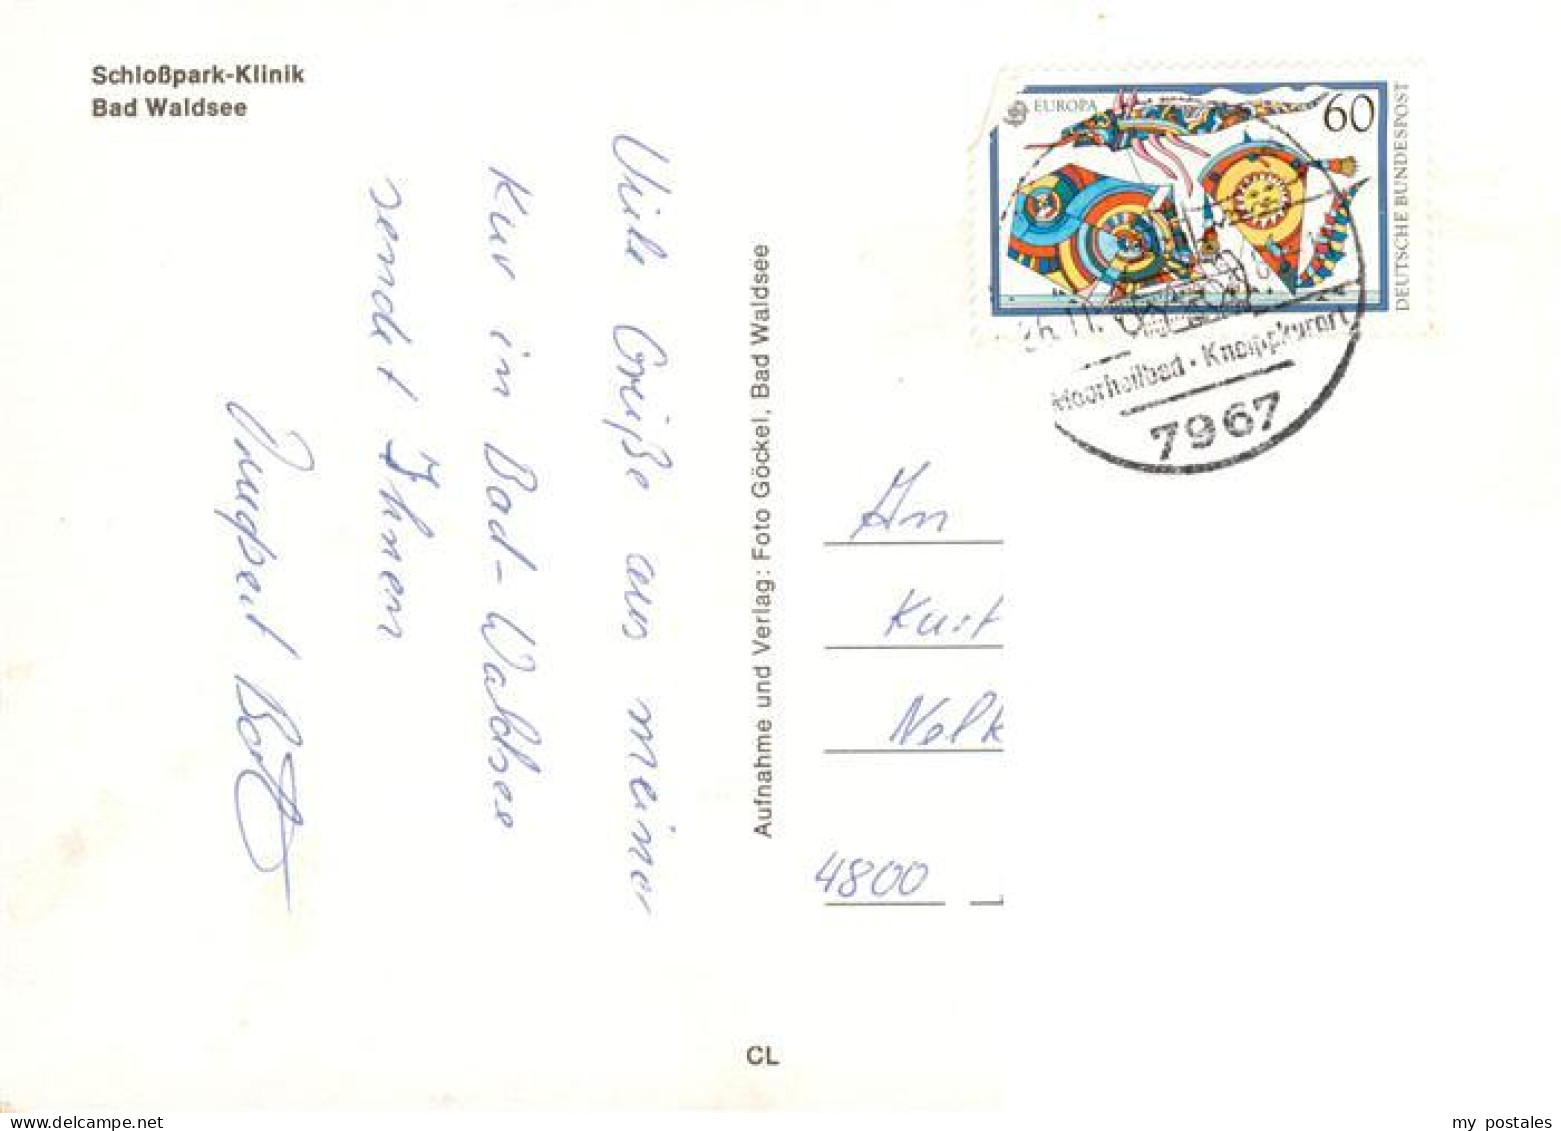 Schloßpark-Klinik
Bad Waldsee
Viele Grüße aus meiner
Kur in Bad-Waldsee
sendet Ihnen
Aufnahme und Verlag: Foto Göckel, Bad Waldsee
CL
EUROPA
60
DEUTSCHE BUNDESPOST
26.11.
Moorheilbad · Kneippkurort
7967
An
Kurt
Nelk
4800
my postales